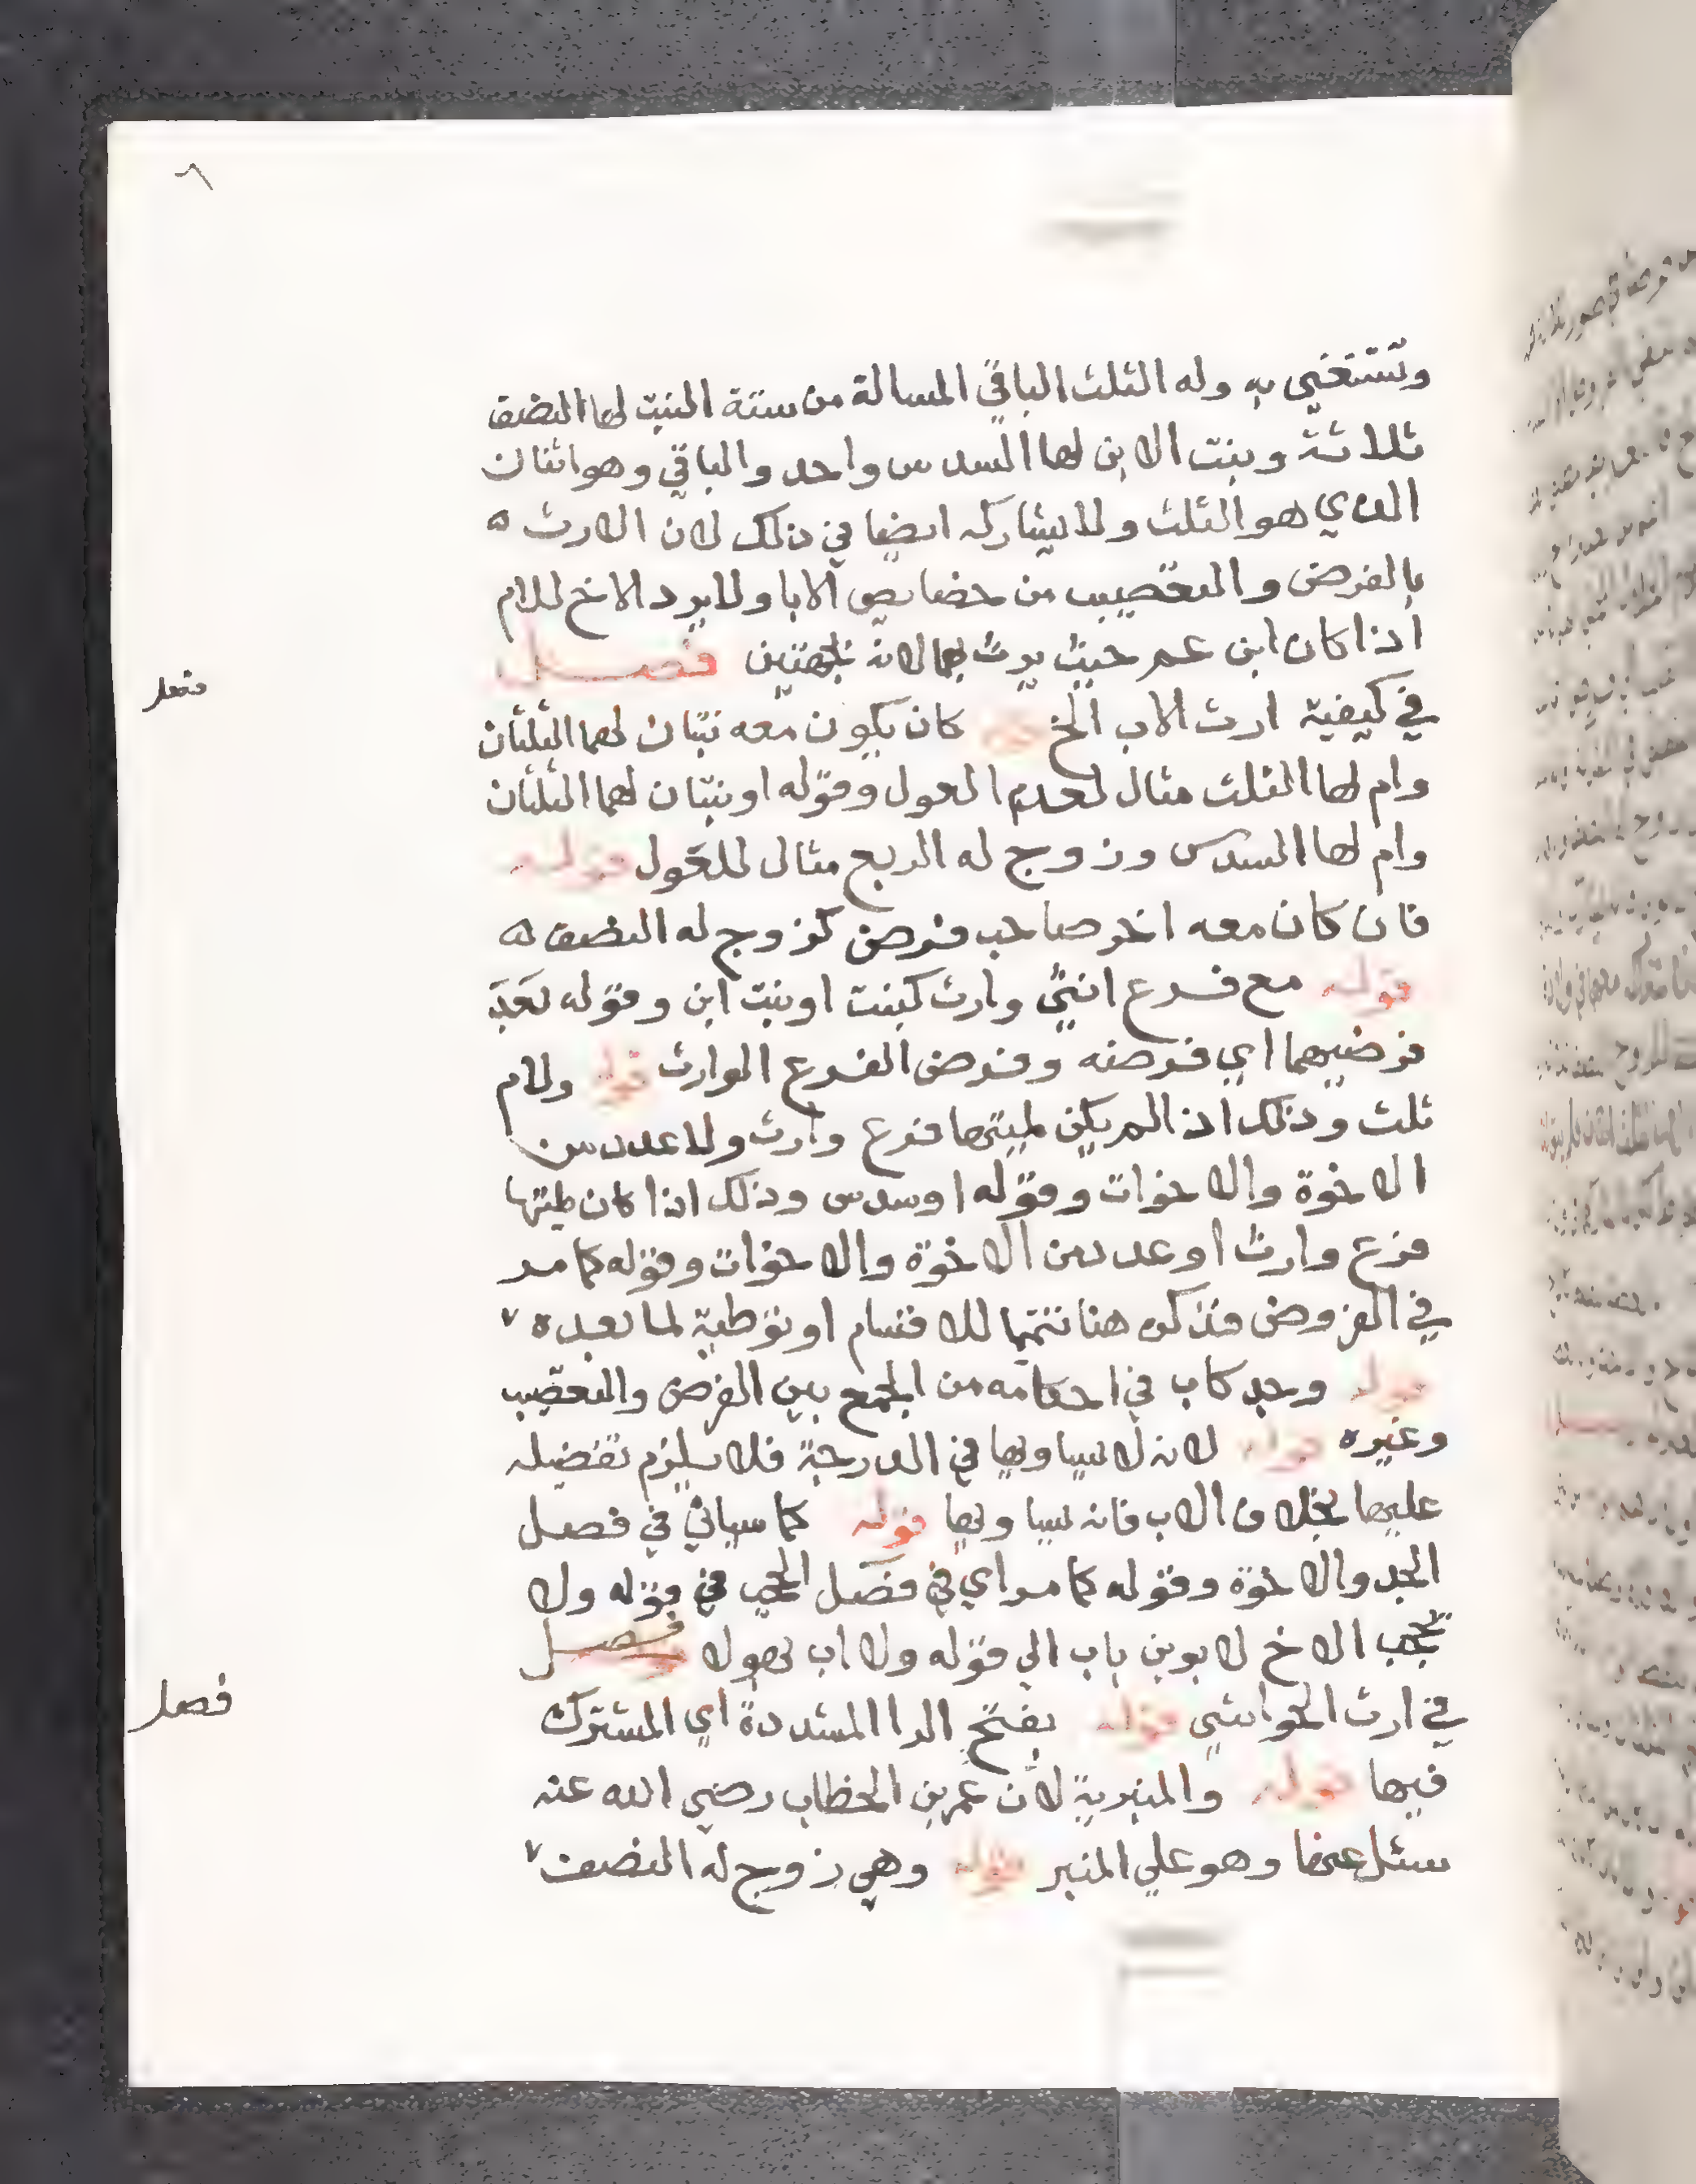 ٦
وتستغني به وله الثلث الباقي المسالة من ستة البنت لها النصف
ثلاثة وبنت الابن لها السدس واحد والباقي وهو اثنان
الذي هو الثلث ولا يشاركه ايضا في ذلك لان الارث ه
بالفرض والتعصيب من خصايص الابا ولا يرد الاخ للام
اذا كان ابن عم حيث يرث بهما لانه بجهتين فصل
فصل
في كيفية ارث الاب الخ قوله كان يكون معه بنتان لهما الثلثان
وام لها الثلث مثال لعدم العول وقوله او بنتان لهما الثلثان
وام لها السدس وزوج له الربع مثال للعول قوله
فان كان معه اخر صاحب فرض كزوج له النصف ه
قوله مع فرع انثي وارث كبنت او بنت ابن وقوله بعد
فرضيهما اي فرضه وفرض الفرع الوارث قوله ولام
ثلث وذلك اذا لم يكن لميتها فرع وارث ولا عدد من
الاخوة والاخوات وقوله او سدس وذلك اذا كان لميتها
فرع وارث او عدد من الاخوة والاخوات وقوله كما مر
في الفروض فذكره هنا تتميما للاقسام او توطية لما بعده
قوله وجد كاب في احكامه من الجمع بين الفرض والتعصيب
وغيره قوله لانه لا يساويها في الدرجة فلا يلزم تفضيله
عليها بخلاف الاب فانه يساويها قوله كما سياتي في فصل
الجد والاخوة وقوله كما مر اي في فصل الحجب في قوله ولا
يحجب الاخ لابوين باب الي قوله ولا اب بهولا فصل
فصل
في ارث الحواشي قوله بفتح الرا المشددة اي المشترك
فيها قوله والمنبرية لان عمر بن الخطاب رضي الله عنه
سئل عنها وهو علي المنبر قوله وهي زوج له النصف